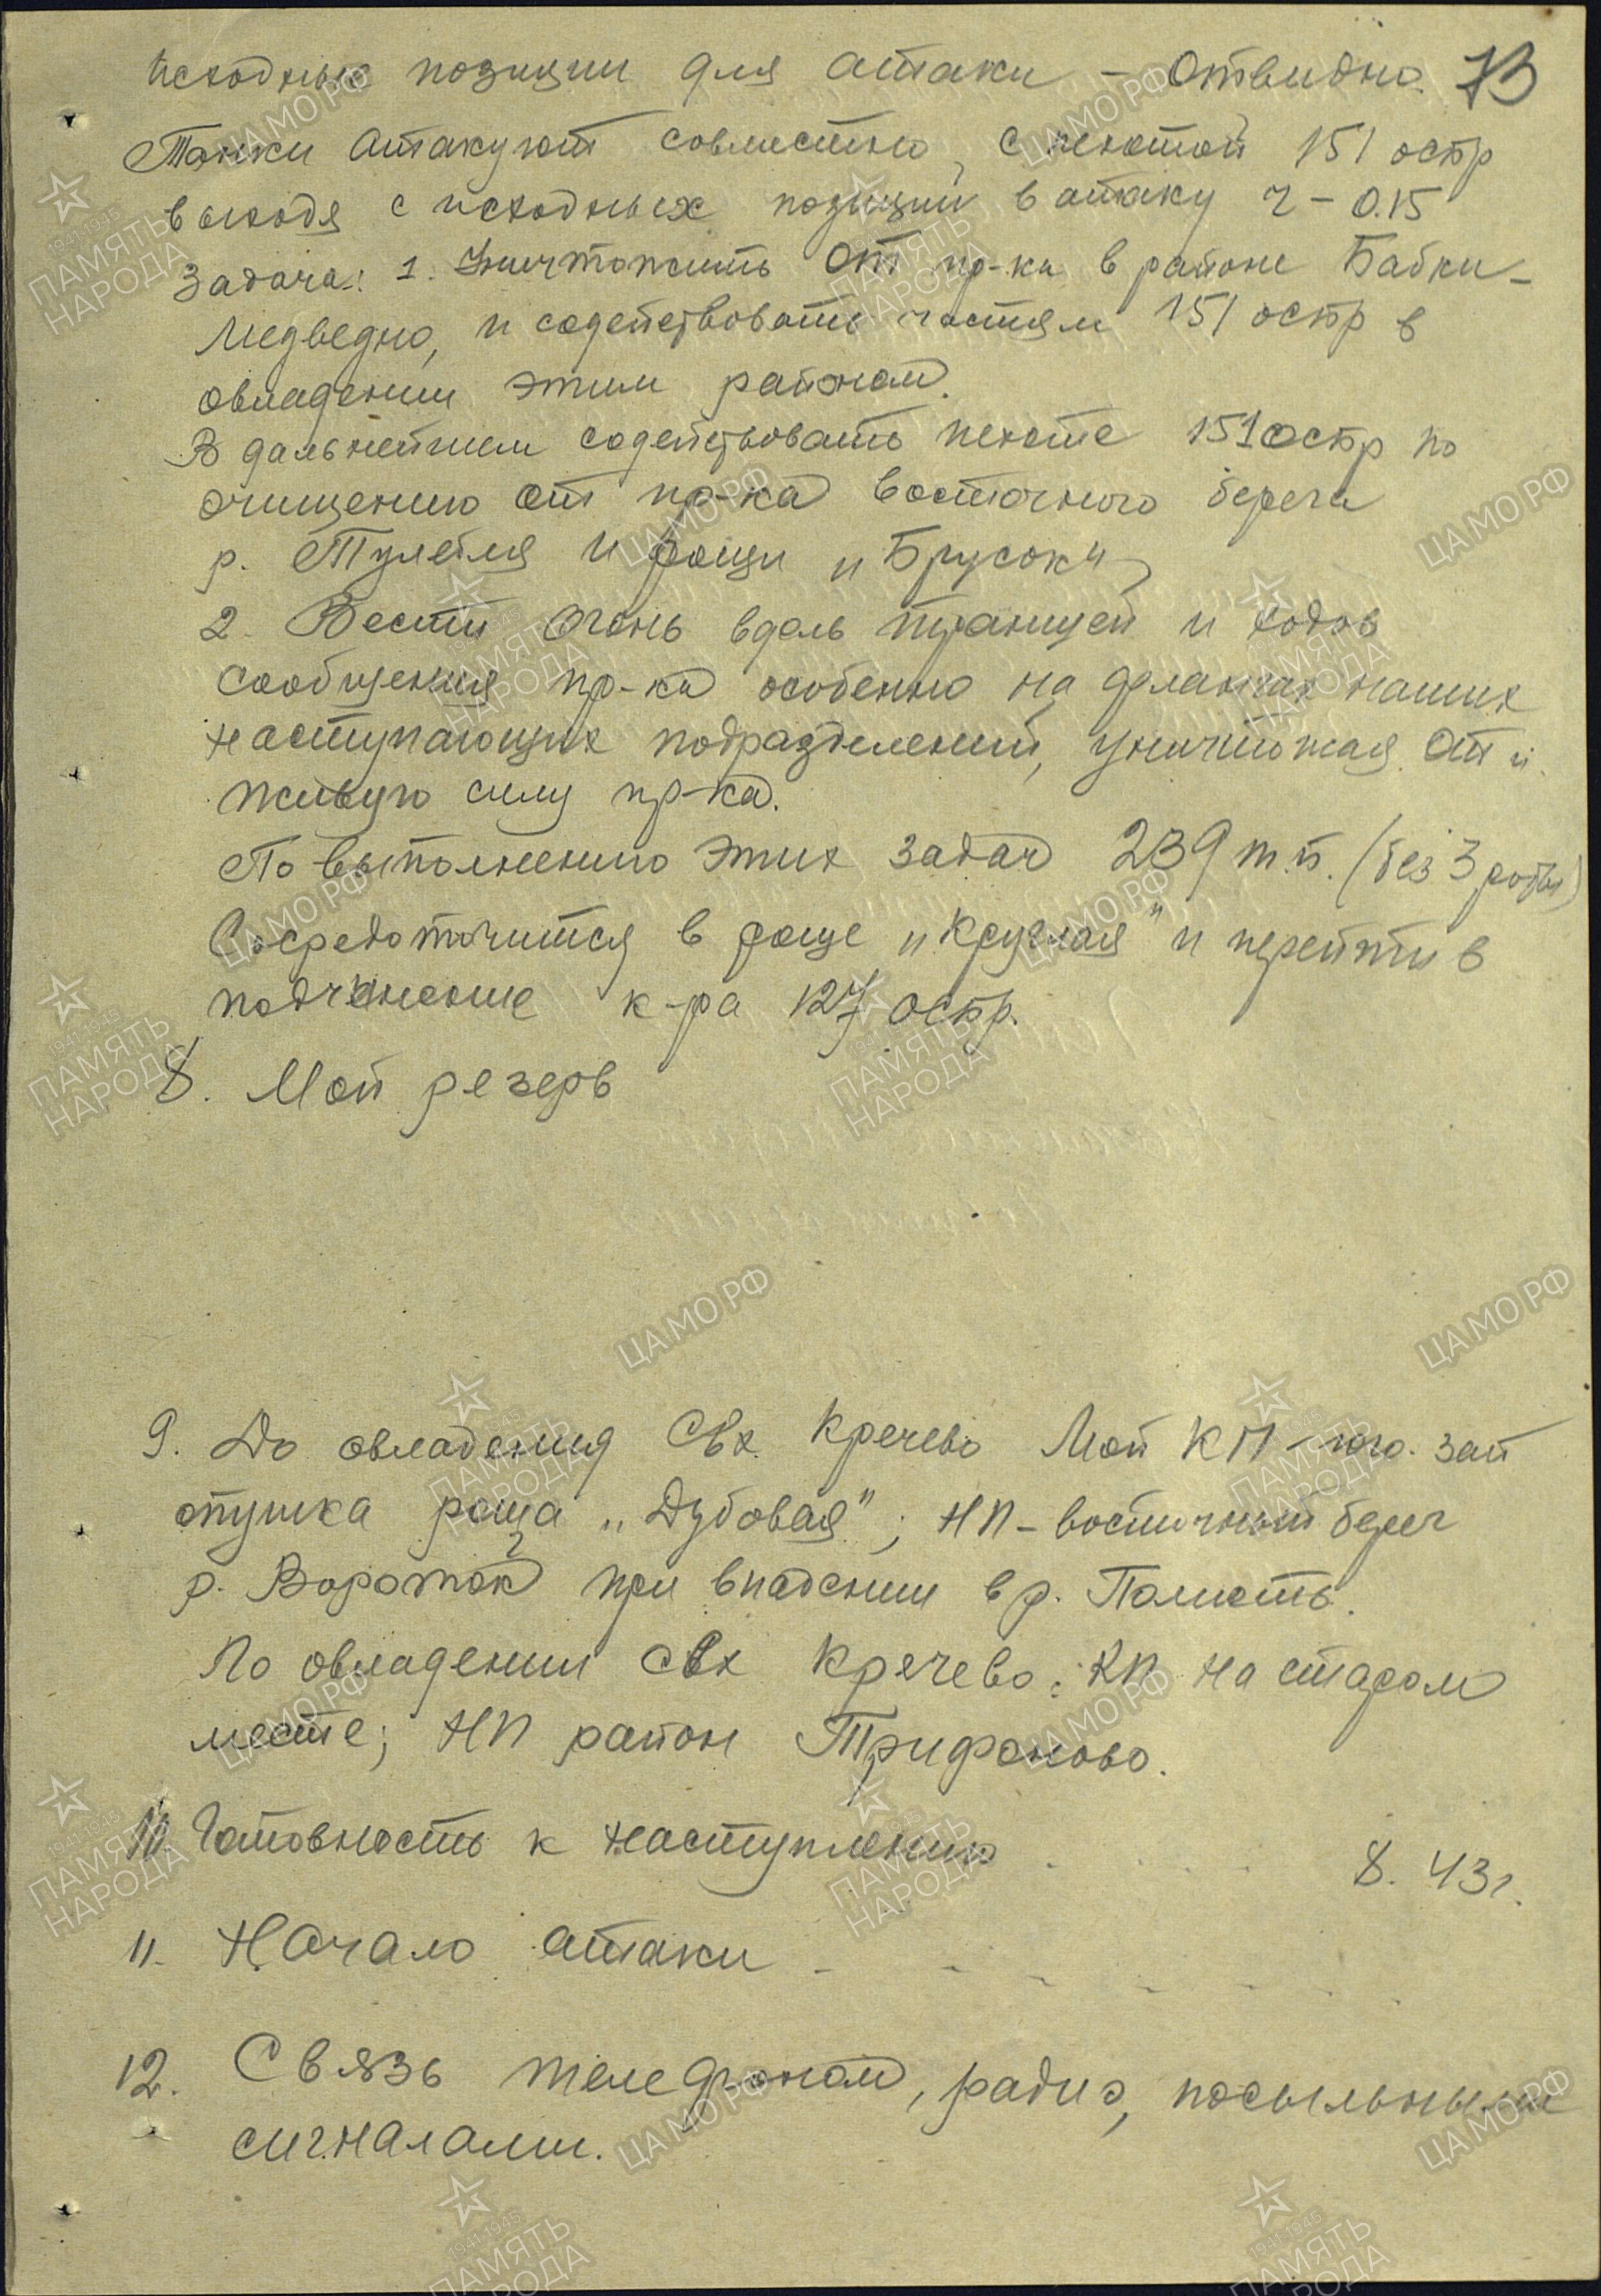 исходные позиции для атаки – Отвидно. 73
Танки атакуют совместно, с пехотой 151 остр
выходя с исходных позиций в атаку Ч – 0.15
Задача: 1. Уничтожить ОТ пр-ка в районе Бабки –
Медведно, и содействовать частям 151 остр в
овладении этим районом.
В дальнейшем содействовать пехоте 151 остр по
очищению от пр-ка восточного берега
р. Тулебля и рощи „Брусок"
2. Вести огонь вдоль траншей и ходов
сообщения пр-ка особенно на флангах наших
наступающих подразделений, уничтожая ОТ и
живую силу пр-ка.
По выполнению этих задач 239 т.п. (без 3 роты)
Сосредоточится в роще „Круглая" и перейти в
подчинение к-ра 127 остр.
8. Мой резерв
9. До овладения Свх. Кречево Мой КП – юго. зап
опушка роща „Дубовая"; НП – восточный берег
р. Вороток при впадении в р. Полисть.
По овладении свх Кречево: КП на старом
месте; НП район Трифоново.
10. Готовность к наступлению 8. 43г.
11. Начало атаки - - - - -
12. Связь телефоном, радио, посыльными
сигналами.
ЦАМО РФ
1941-1945
ПАМЯТЬ
НАРОДА